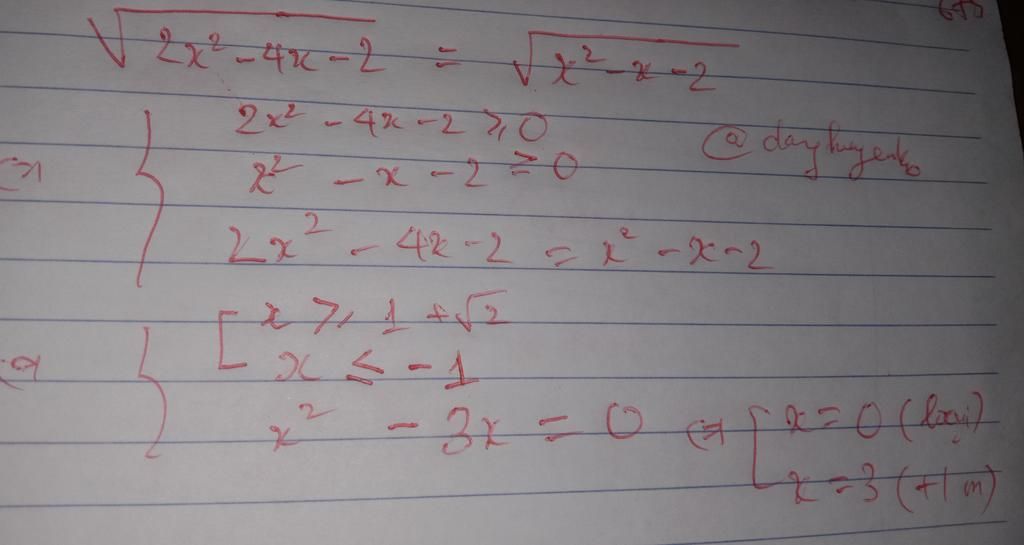 √(2x² - 4x - 2) = √(x² - x - 2)
2x² - 4x - 2 ≥ 0
x² - x - 2 ≥ 0
2x² - 4x - 2 = x² - x - 2
x ≥ 1 + √2
x ≤ -1
x² - 3x = 0 ⇔ [ x = 0 (loại)
x = 3 (t/m)